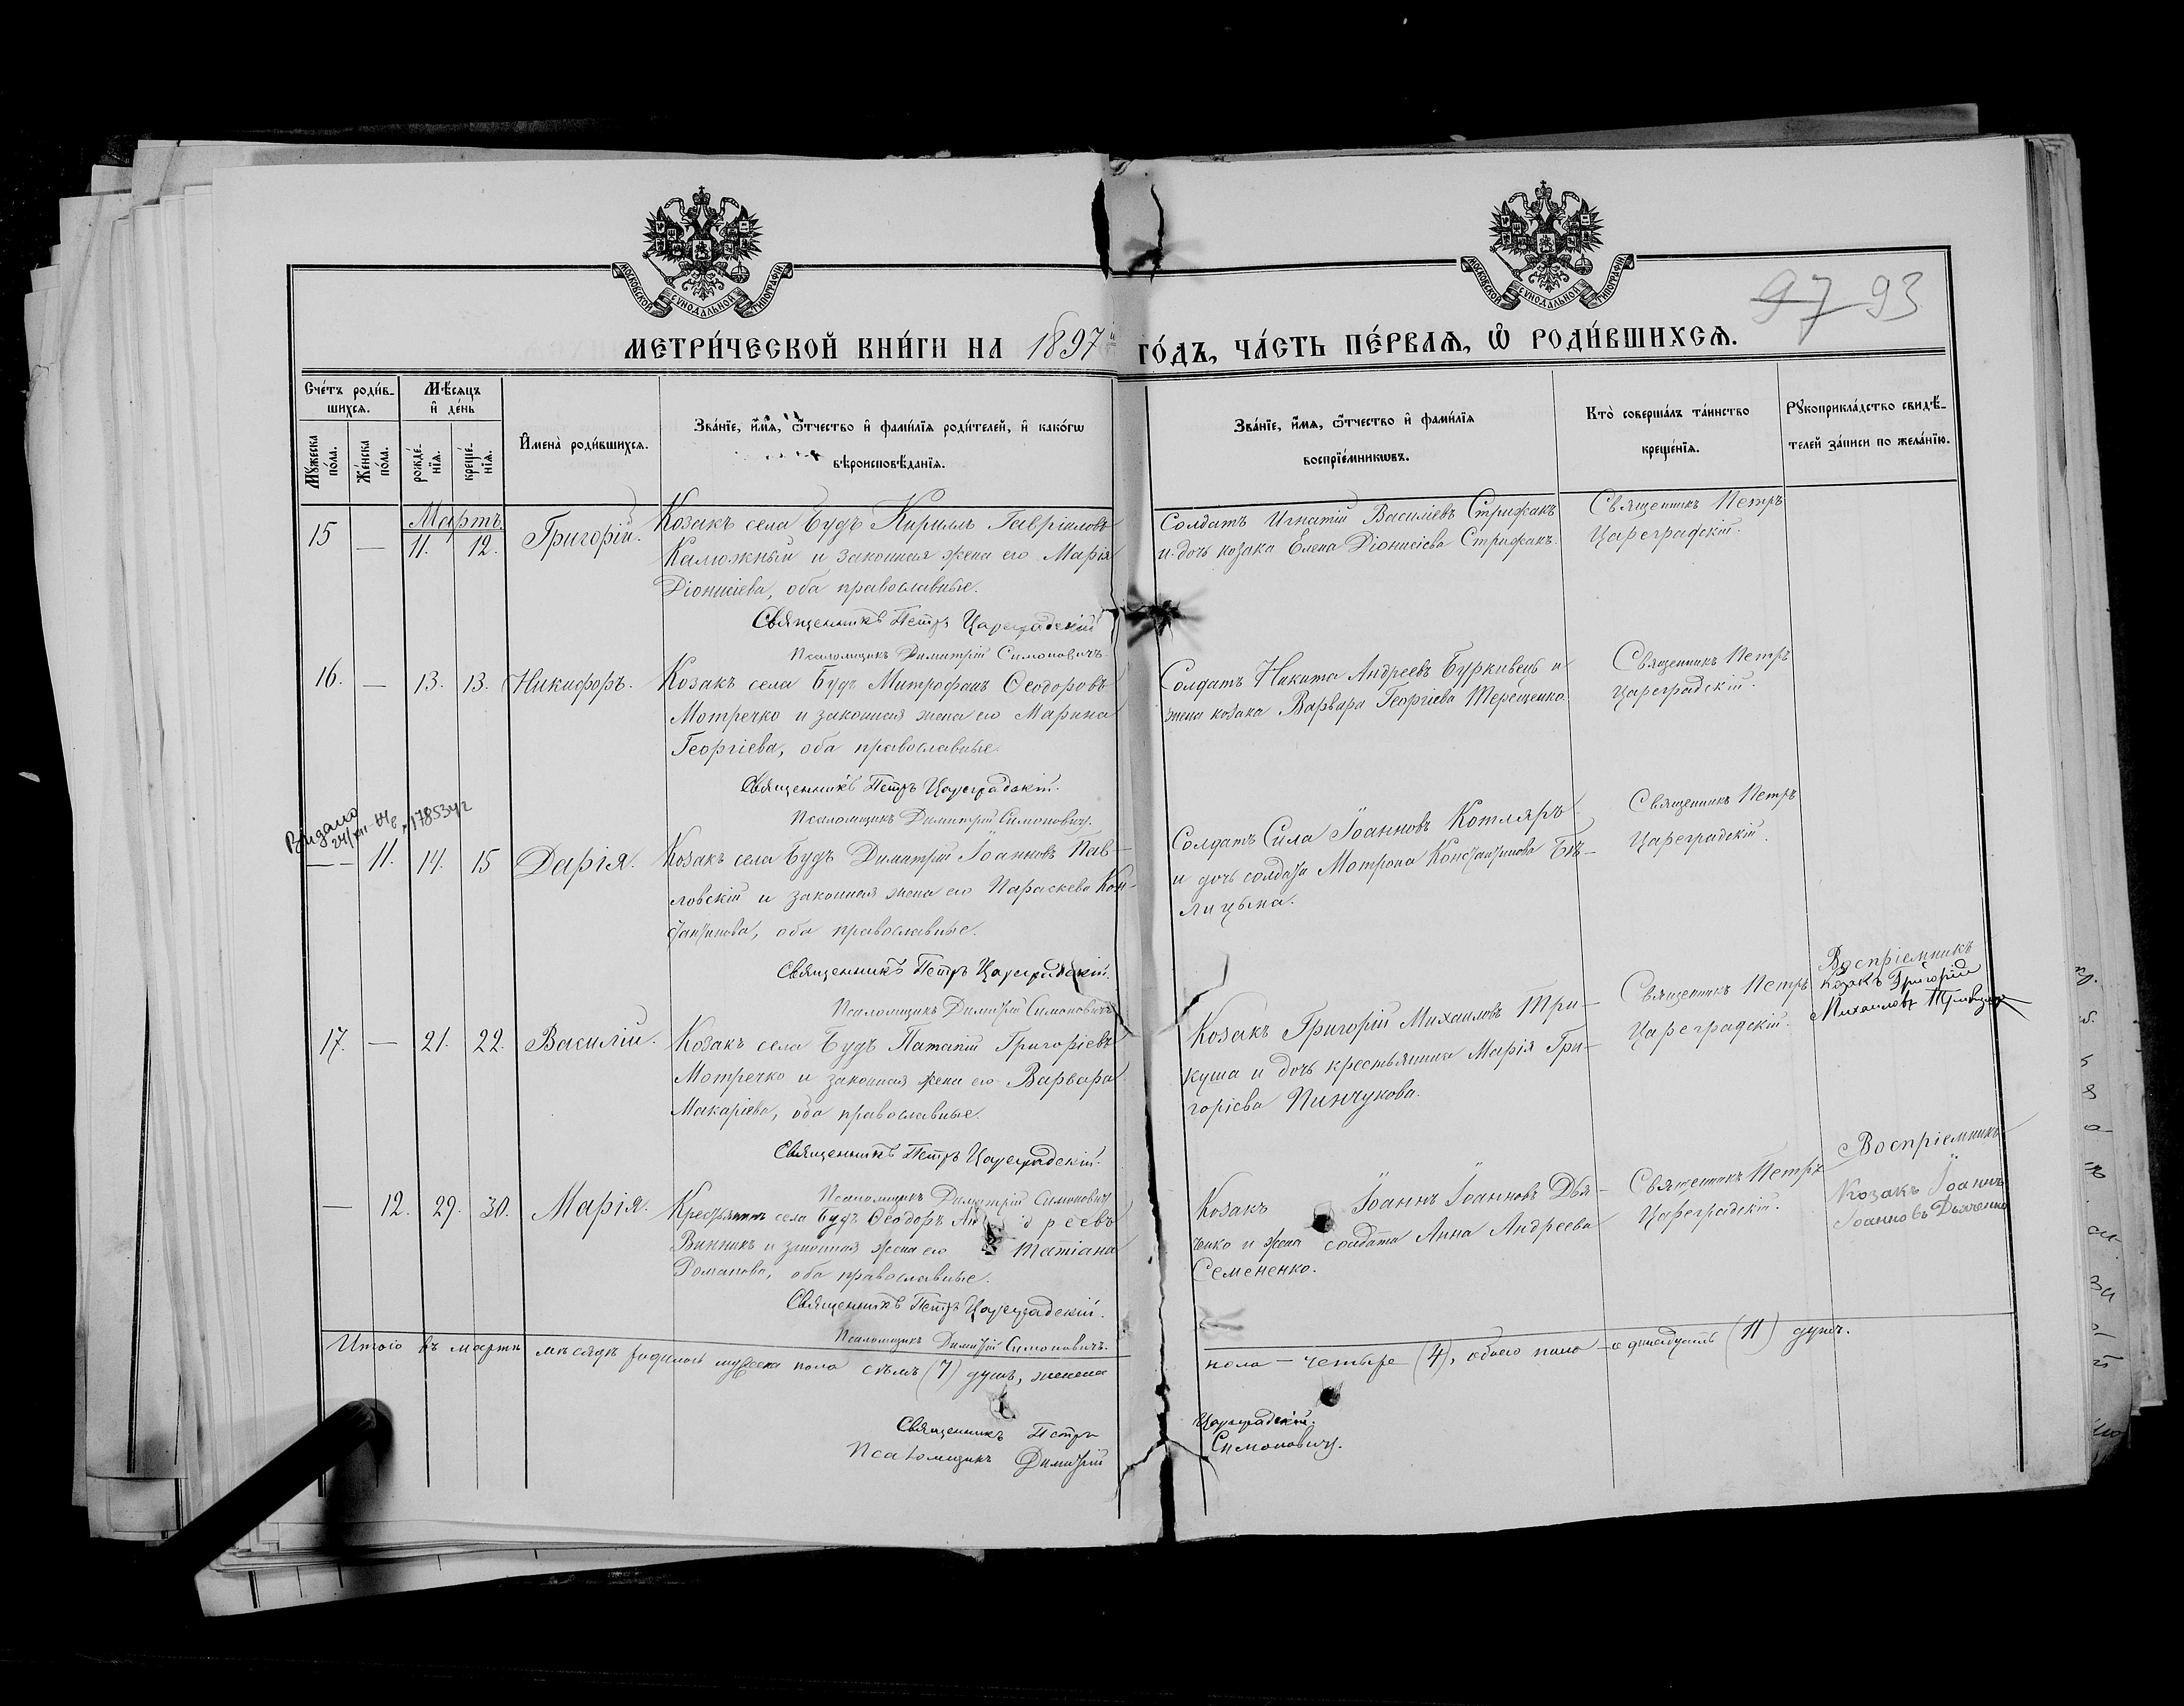 МОСКОВСКОЙ СУНОДАЛЬНОЙ ТИПОГРАФІИ
МОСКОВСКОЙ СУНОДАЛЬНОЙ ТИПОГРАФІИ
97 93
МЕТРИ́ЧЕСКОЙ КНИ́ГИ НА 1897й ГО́ДЪ, ЧА́СТЬ ПЕ́РВАѦ, Ѡ҆ РОДИ́ВШИХСѦ.
Сче́тъ роди́в-
шихсѧ.
Мꙋ́жеска
по́ла.
Же́нска
по́ла.
Мѣ́сѧцъ
и҆ де́нь
рожде́-
нїѧ.
креще́-
нїѧ.
И҆мена̀ роди́вшихсѧ.
Зва́нїе, и҆́мѧ, ѻ҆́тчество и҆ фамѝлїѧ роди́телей, и҆ како́гѡ
вѣроисповѣ́данїѧ.
Зва́нїе, и҆́мѧ, ѻ҆́тчество и҆ фами́лїѧ
воспрїе́мникѡвъ.
Кто̀ соверша́лъ та́инство
креще́нїѧ.
Рꙋкоприкла́дство свидѣ́-
телей за́писи по жела́нїю.
Мартъ
15 — 11. 12. Григорій.
Козакъ села Будъ Кириллъ Гавріиловъ
Калюжный и законная жена его Марія
Діонисіева, оба православные.
Священникъ Петръ Цареградскій
Псаломщикъ Димитрій Симоновичъ
Солдатъ Игнатій Василіевъ Стрижакъ
и дочь козака Елена Діонисіева Стрижакъ.
Священникъ Петръ
Цареградскій.
16. — 13. 13. Никифоръ.
Козакъ села Будъ Митрофанъ Ѳеодоровъ
Мотречко и законная жена его Марина
Георгіева, оба православные.
Священникъ Петръ Цареградскій.
Псаломщикъ Димитрій Симоновичъ.
Солдатъ Никита Андреевъ Буркивецъ и
жена козака Варвара Георгіева Терещенко.
Священникъ Петръ
Цареградскій.
Видано
— 11. 14. 15 Дарія.
Козакъ села Будъ Димитрій Іоанновъ Пав-
ловскій и законная жена его Параскева Кон-
стантинова, оба православные.
Священникъ Петръ Цареградскій.
Псаломщикъ Димитрій Симоновичъ
Солдатъ Сила Іоанновъ Котляръ
и дочь солдата Мотрона Константинова Бѣ-
лицына.
Священникъ Петръ
Цареградскій.
17. — 21. 22. Василій.
Козакъ села Будъ Патапій Григоріевъ
Мотречко и законная жена его Варвара
Макаріева, оба православные.
Священникъ Петръ Цареградскій.
Псаломщикъ Димитрій Симоновичъ
Козакъ Григорій Михаиловъ Три-
куша и дочь крестьянина Марія Гри-
горіева Пинчукова.
Священникъ Петръ
Цареградскій.
Воспріемникъ
Козакъ Григорій
Михаиловъ
— 12. 29. 30. Марія.
Крестьянинъ села Будъ Ѳеодоръ Андреевъ
Винникъ и законная жена его Татіана
Романова, оба православные.
Священникъ Петръ Цареградскій.
Псаломщикъ Димитрій Симоновичъ.
Козакъ Іоаннъ Іоанновъ Дья-
ченко и жена солдата Анна Андреева
Семененко.
Священникъ Петръ
Цареградскій.
Воспріемникъ
Козакъ Іоаннъ
Іоанновъ Дьяченко
Итого въ мартѣ мѣсяцѣ родилось мужеска пола сѣмъ (7) душъ, женска
пола — четыре (4), обоего пола — одинадцать (11) душъ.
Священникъ Петръ Цареградскій.
Псаломщикъ Димитрій Симоновичъ.